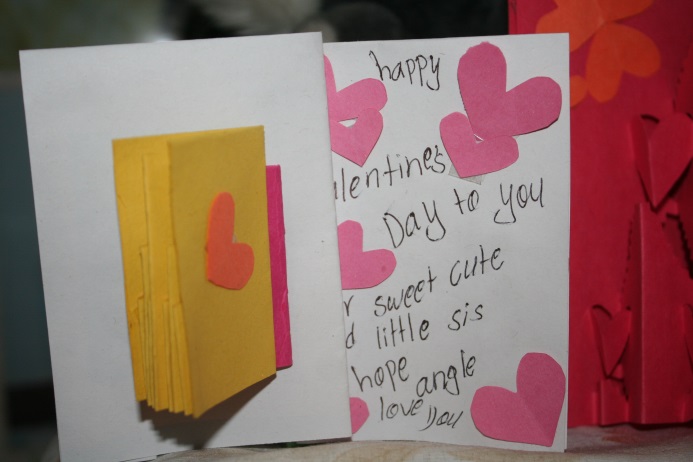 happy
alentine's
Day to you
r sweet cute
d little sis
hope angle
love